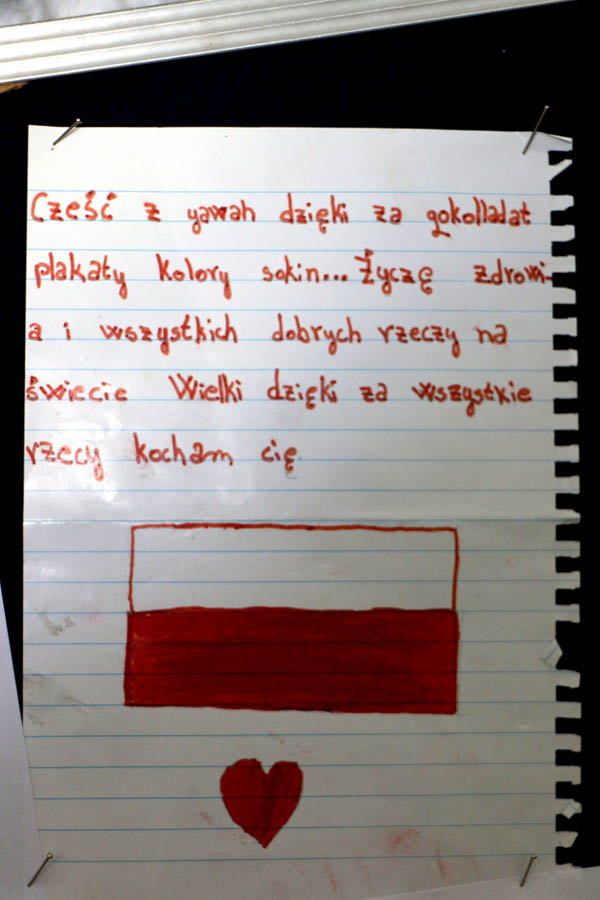 Cześć z yawah dzięki za gokolladat
plakaty kolory sokin... Życzę zdrowi-
a i wszystkich dobrych rzeczy na
świecie Wielki dzięki za wszystkie
rzecy kocham cię